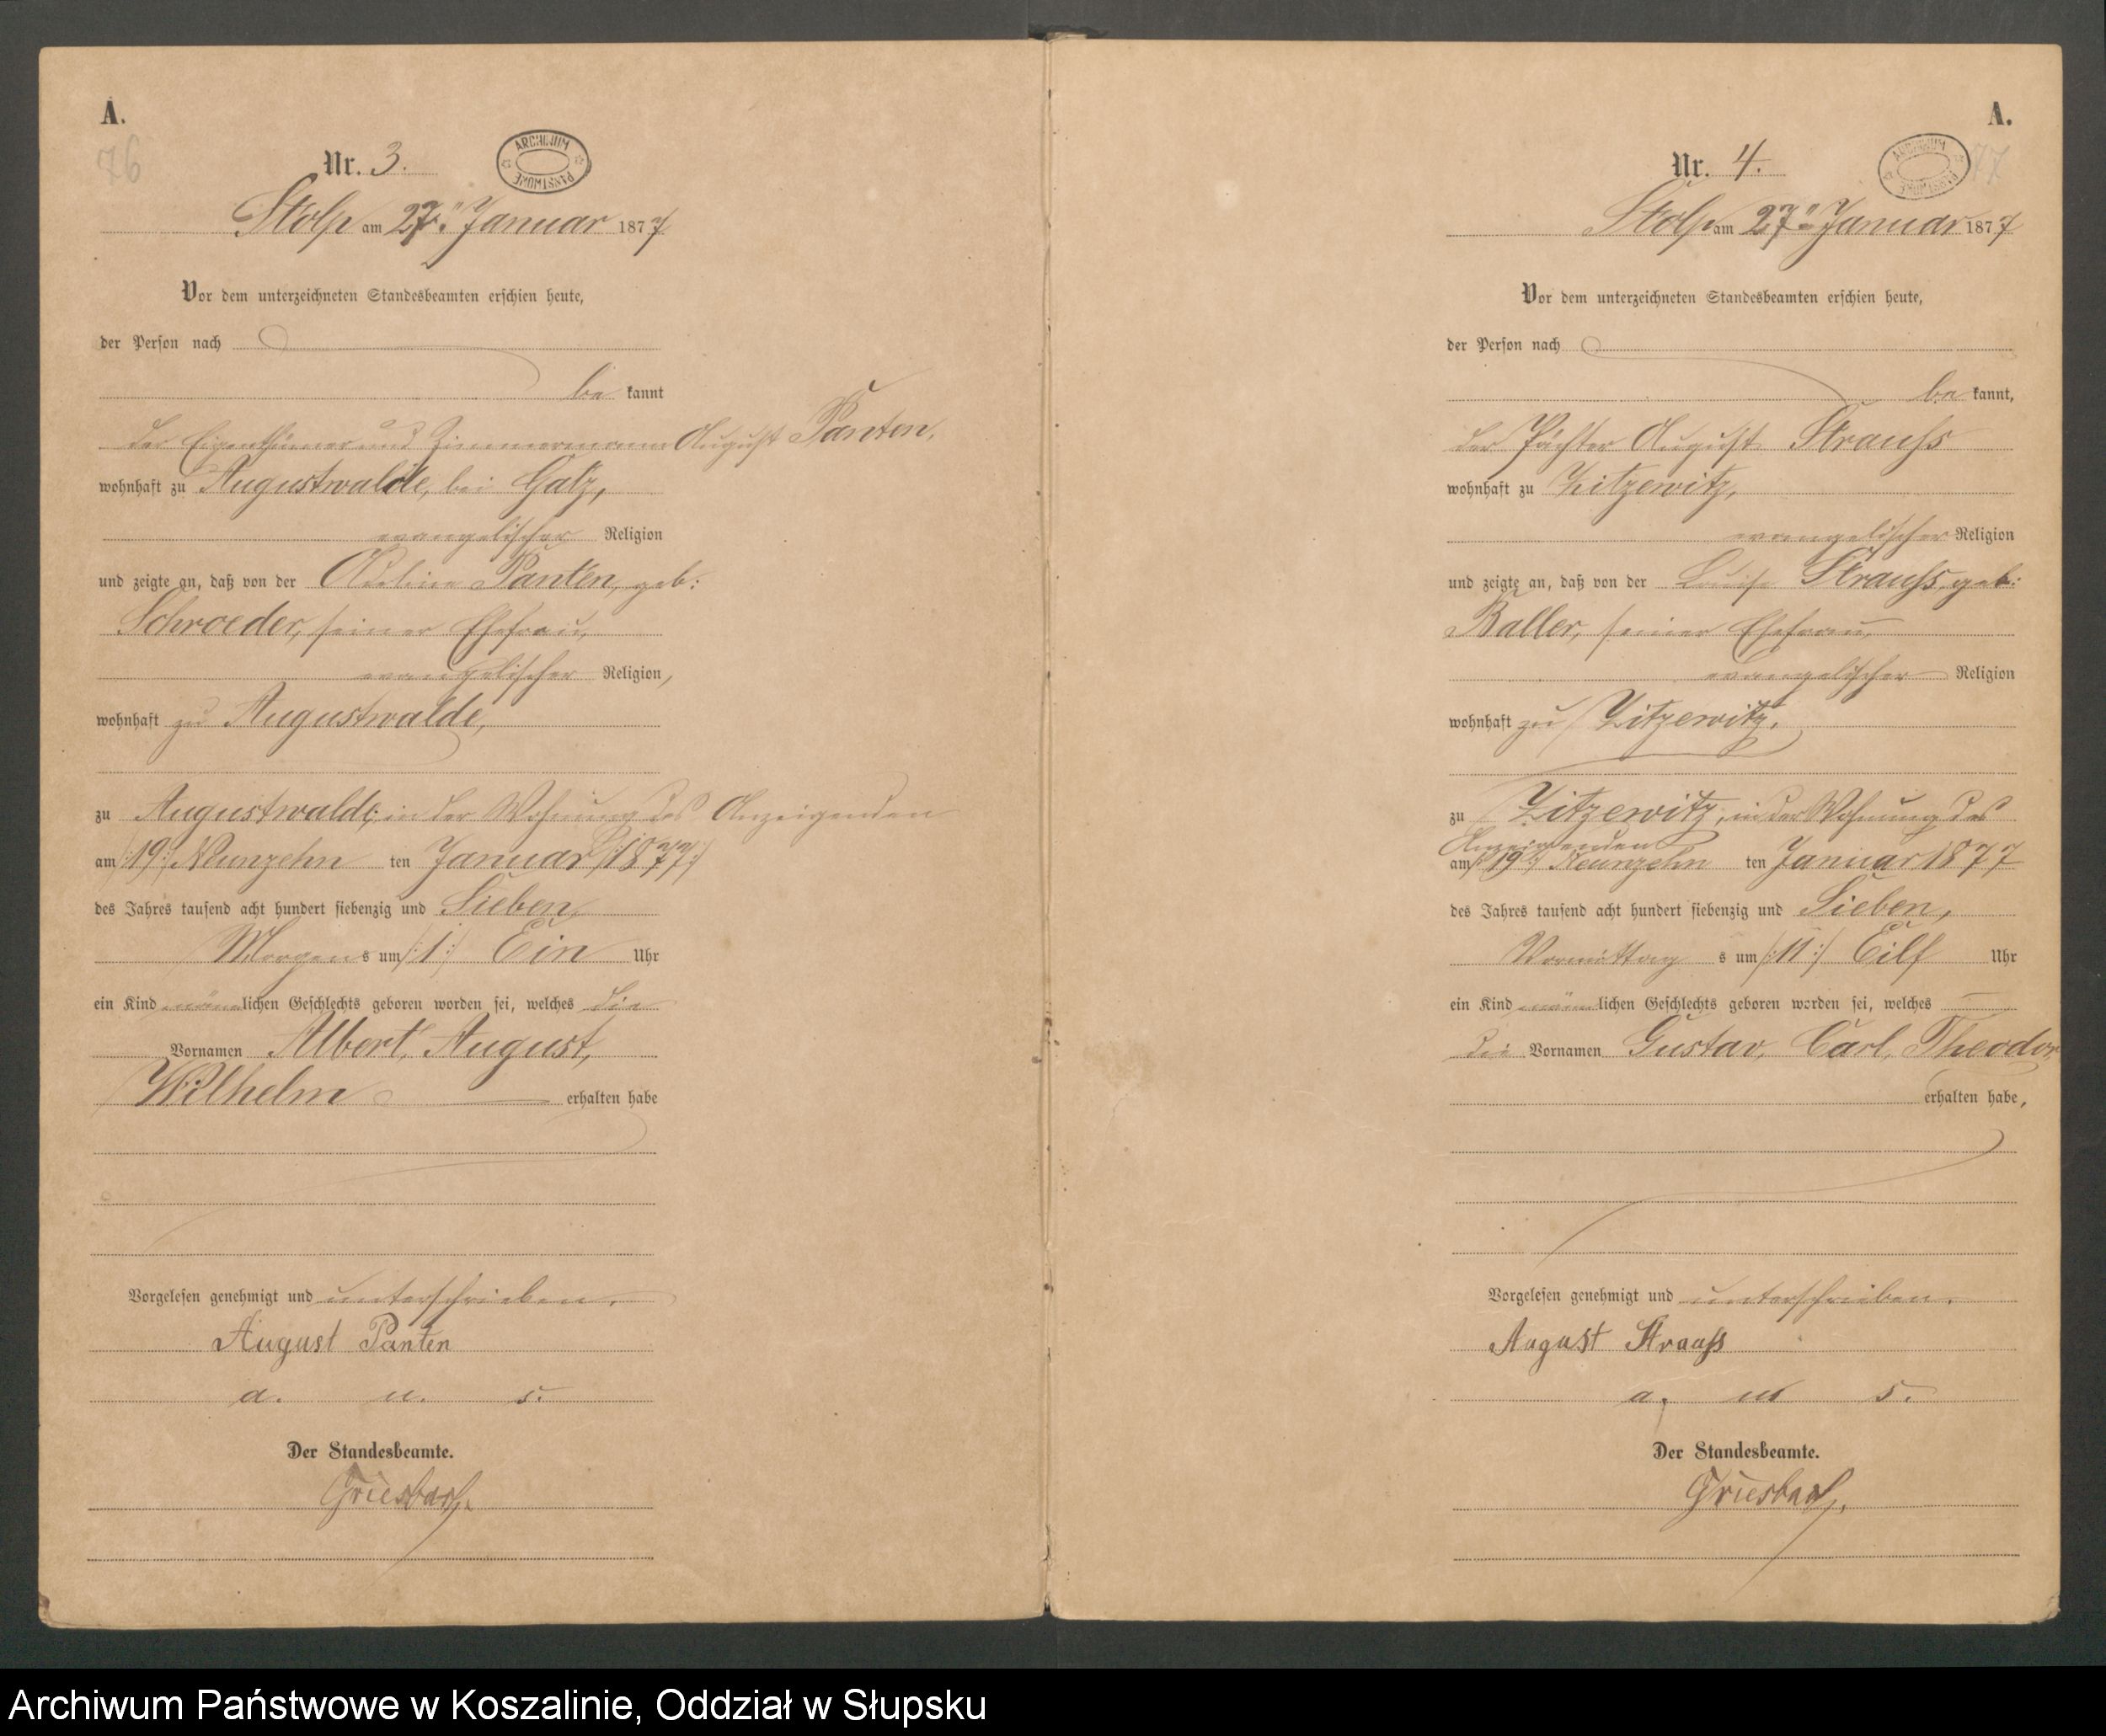 A.
76
Nr. 3.
ARCHIWUM PAŃSTWOWE
Stolp am 27ⁿ Januar 1877
Vor dem unterzeichneten Standesbeamten erschien heute,
der Person nach
be kannt
der Eigenthümer und Zimmermann August Panten,
wohnhaft zu Augustwalde, bei Gatz,
evangelischer Religion
und zeigte an, daß von der Panten, geb:
Schroeder, seiner Ehefrau,
evangelischer Religion,
wohnhaft zu Augustwalde,
zu Augustwalde, in der Wohnung des Anzeigenden
am /:19:/ Neunzehn ten Januar /:1877:/
des Jahres tausend acht hundert siebenzig und Sieben,
Morgens um /:1:/ Ein Uhr
ein Kind männlichen Geschlechts geboren worden sei, welches die
Vornamen Albert, August,
Wilhelm erhalten habe
Vorgelesen genehmigt und unterschrieben.
August Panten
a. u. s.
Der Standesbeamte.
Griesbach.
A.
77
Nr. 4.
ARCHIWUM PAŃSTWOWE
Stolp am 27ⁿ Januar 1877
Vor dem unterzeichneten Standesbeamten erschien heute,
der Person nach
be kannt,
der Pächter August Strauss
wohnhaft zu Zitzewitz,
evangelischer Religion
und zeigte an, daß von der Louise Strauss, geb:
Baller, seiner Ehefrau,
evangelischer Religion
wohnhaft zu Zitzewitz,
zu Zitzewitz, in der Wohnung des
Anzeigenden
am /:19:/ Neunzehn ten Januar 1877
des Jahres tausend acht hundert siebenzig und Sieben,
Vormittags um /:11:/ Eilf Uhr
ein Kind männlichen Geschlechts geboren worden sei, welches
die Vornamen Gustav, Carl, Theodor
erhalten habe,
Vorgelesen genehmigt und unterschrieben.
August Strauss
a. u. s.
Der Standesbeamte.
Griesbach.
Archiwum Państwowe w Koszalinie, Oddział w Słupsku